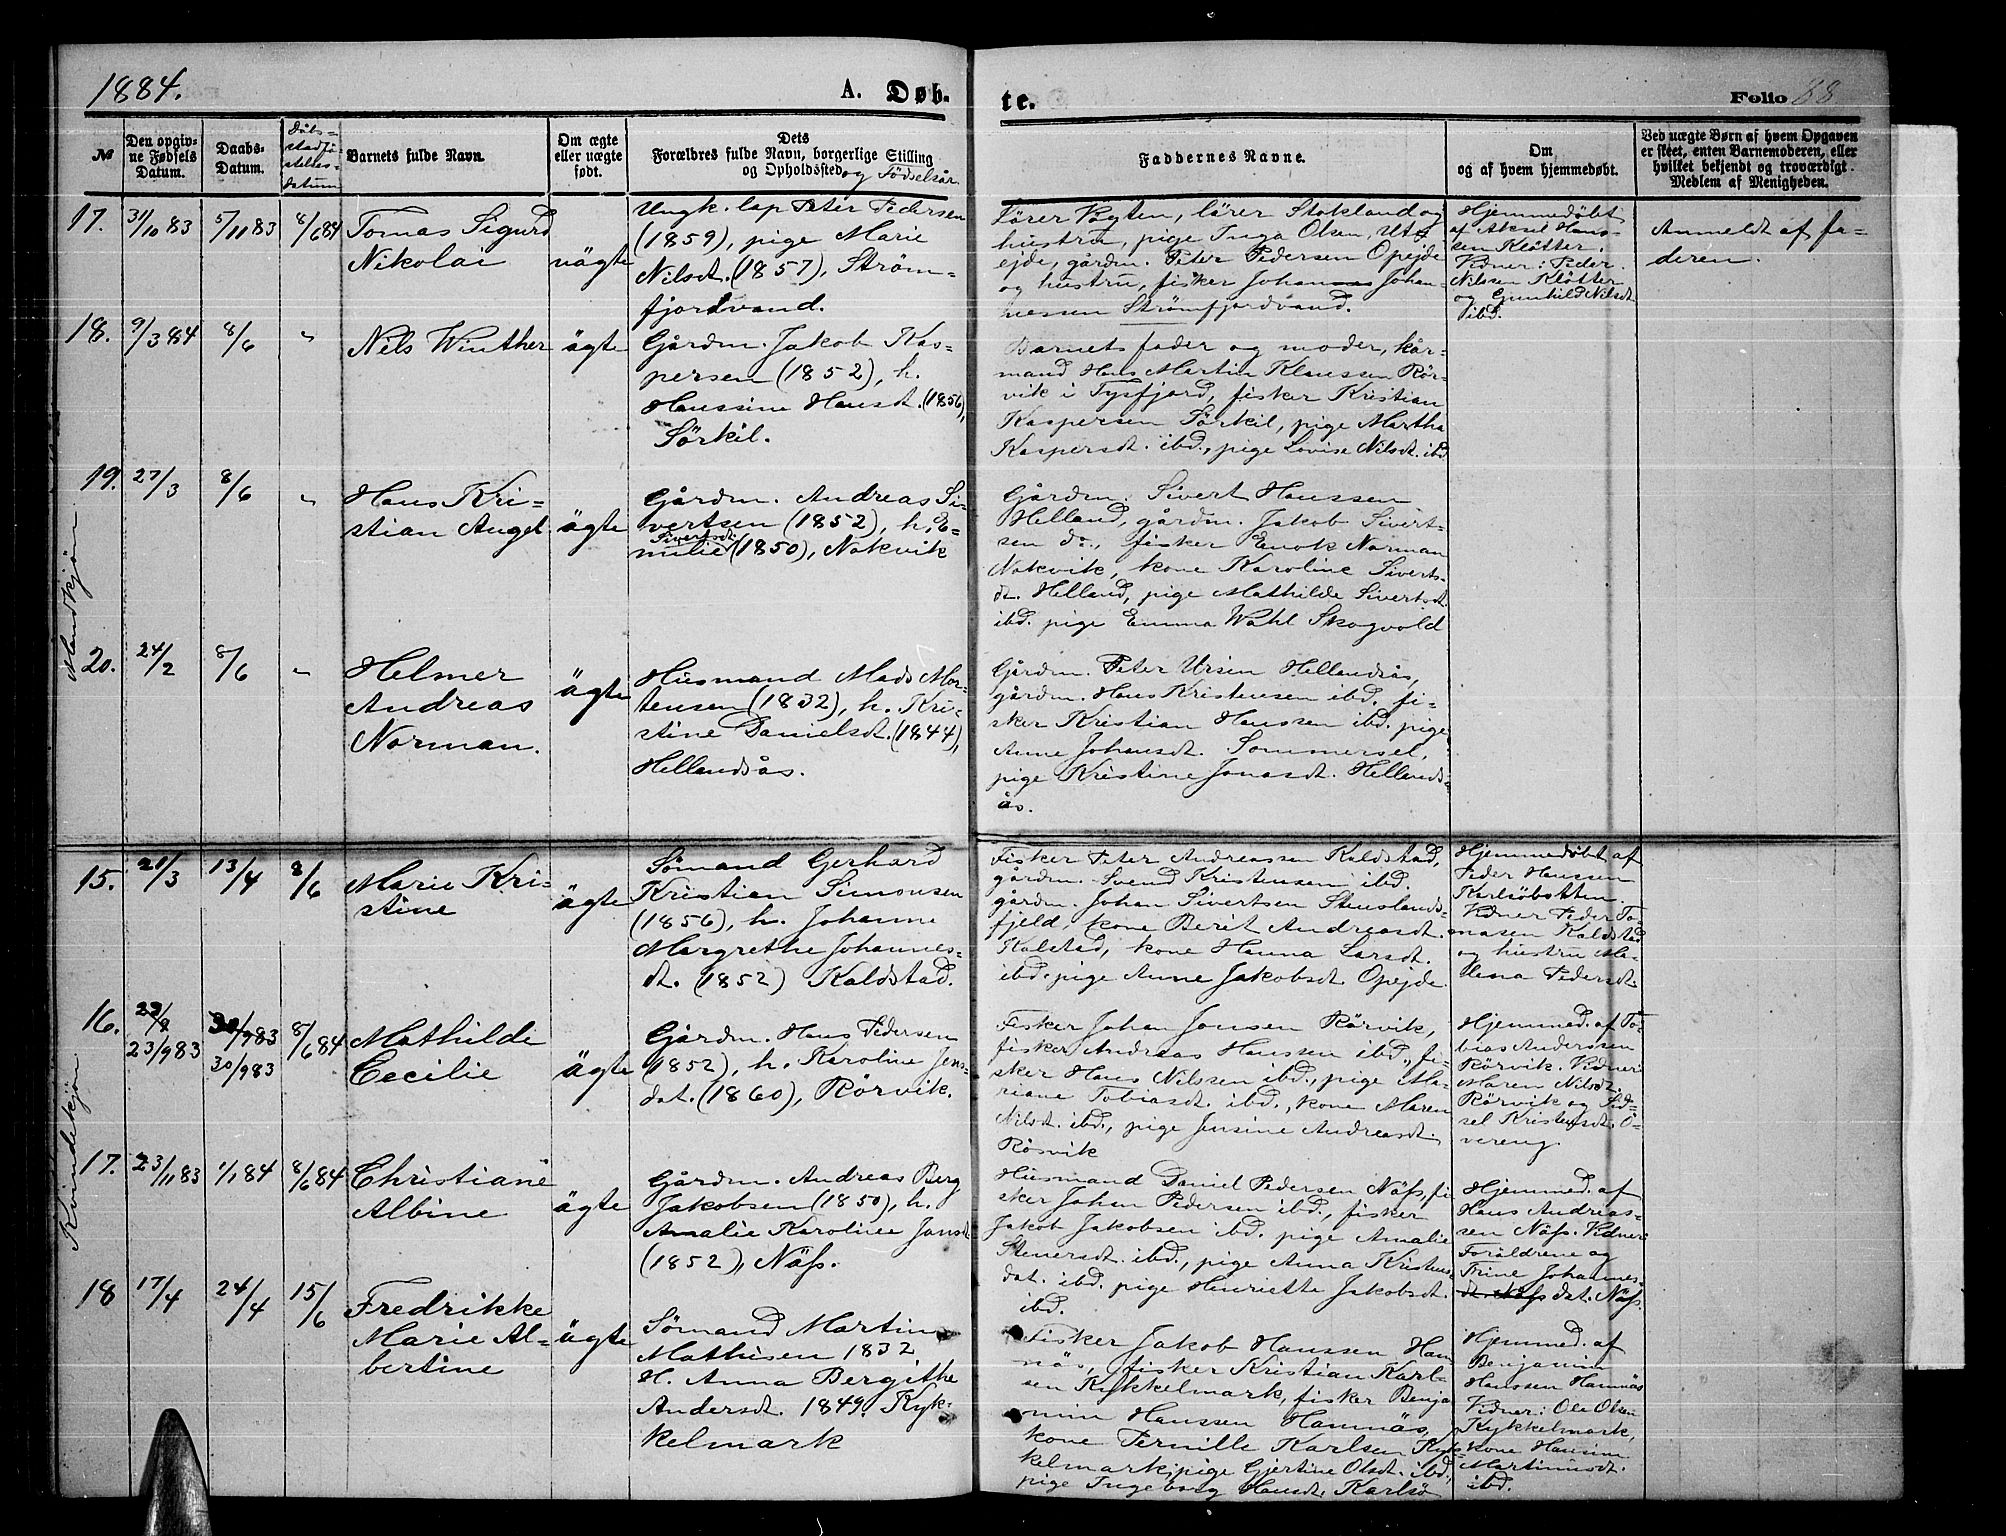 1884.
A. Døb.
te.
Folio 88
№
Den opgiv-
ne Fødsels
Datum.
Daabs-
Datum.
Dåbs-
stadfæ-
stelses-
datum
Barnets fulde Navn.
Om ægte
eller uægte
født.
Dets
Forældres fulde Navn, borgerlige Stilling
og Opholdssted og Födselsår.
Faddernes Navne.
Om
og af hvem hjemmedøbt.
Ved uægte Børn af hvem Opgaven
er skeet, enten Barnemoderen, eller
hvilket bekjendt og troværdigt
Medlem af Menigheden.
Mandkjön
17. 31/10 83 5/11 83 8/6 84
Tomas Sigurd
Nikolai
uägte
Ungk. lap Peter Pedersen
(1859), pige Marie
Nilsdt. (1857), Ström-
fjordvand.
Lärer Vogten, lärer Stokland og
hustru, pige Inga Olsen, Ut-
ejde, gårdm. Peter Pedersen Opejde
og hustru, fisker Johannes Johan-
nessen Strömfjordvand.
Hjemmedöbt
af Aksel Hans-
sen Klötter.
Vidner: Peder
Nilssen Klötter
og Gunhild Nilsdt.
ibd.
Anmeldt af fa-
deren.
18. 9/3 84 8/6 "
Nils Winther
ägte
Gårdm. Jakob Kas-
persen (1852), h.
Hanssine Hansdt. (1856),
Sörkil.
Barnets fader og moder, kår-
mand Hans Martin Klaussen Rör-
vik i Tysfjord, fisker Kristian
Kaspersen Sörkil, pige Martha
Kaspersdt. ibd., pige Lovise Nilsdt. ibd
19. 27/3 8/6 "
Hans Kri-
stian Angel.
ägte
Gårdm. Andreas Si-
vertsen (1852), h. E-
Sivertsdt.
milie (1850), Nakvik
Gårdm. Sivert Hanssen
Helland, gårdm. Jakob Sivert-
sen do., fisker Enok Norman
Nakvik, kone Karoline Siverts-
dt. Helland, pige Mathilde Sivertsdt.
ibd. pige Emma Wahl Skogvold
20. 24/2 8/6 "
Helmer
Andreas
Norman.
ägte
Husmand Mads Mor-
tensen (1832), h. Kri-
stine Danielsdt. (1844),
Hellandsås.
Gårdm. Peter Ursin Hellandsås,
gårdm. Hans Kristensen ibd. fi-
sker Kristian Hanssen ibd. pige
Anne Johansdt. Sommersel,
pige Kristine Jonasdt. Hellands-
ås.
Kvindekjön
15. 21/3 13/4 8/6
Marie Kri-
stine
ägte
Sömand Gerhard
Kristian Simonsen
(1856), h. Johanne
Margrethe Johannes-
dt. (1852) Kaldstad.
Fisker Peter Andreassen Kaldstad,
gårdm. Svend Kristensen ibd.
gårdm. Johan Sivertsen Stenslands-
fjeld, kone Berit Andreasdt.
Kalstad, kone Hanna Larsdt.
ibd. pige Anne Jakobsdt. Opejde.
Hjemmedöbt af
Peder Hanssen
Karlsöbotten.
Vidner Peder To-
masen Kaldstad
og hustru Ma-
lena Pedersdt.
16. 23/9 30/983 8/6 84
23/983 30/983
Mathilde
Cecilie
ägte
Gårdm. Hans Pedersen
(1852), h. Karoline Jens-
dat. (1860), Rörvik.
Fisker Johan Jensen Rörvik,
fisker Andreas Hanssen ibd., fi-
sker Hans Nilssen ibd., pige Ma-
riane Tobiasdt. ibd., kone Maren
Nilsdt. ibd., pige Jensine Andreasdt.
Rösvik
Hjemmed. af To-
bias Anderssen
Rörvik. Vidner:
Maren Nilsdt.
Rörvik og Sid-
sel Kristensdt. Ö-
vereng.
17. 23/11 83 1/1 84 8/6 84
Christiane
Albine
ägte
Gårdm. Andreas Berg
Jakobsen (1850), h.
Amalie Karoline Jansdt
(1852), Näfs.
Husmand Daniel Pedersen Näfs, fi
sker Johan Pedersen ibd., fisker
Jakob Jakobsen ibd. pige Amalie
Stenersdt. ibd., pige Anna Kristens-
dat. ibd. pige Henriette Jakobsdt.
ibd.
Hjemmed. af
Hans Andreas-
sen Näfs. Vidner:
Foräldrene og
Trine Johannes-
dt. Näfs dat. Näfs.
18 17/4 24/4 15/6
Fredrikke
Marie Al-
bertine
ägte
Sömand Martin
Mathisen 1832
H. Anna Bergithe
Andersdt. 1849. Kyk-
kelmark
Fisker Jakob Hanssen Ham
näs, fisker Kristian Karl-
sen Kykkelmark, fisker Benja
min Hanssen Hamnäs,
kone Pernille Karlsen Kyk
kelmark, pige Gjertine Olsdt. ibd,
pige Ingeborg Hansdt. Karlsö
Hjemmed. af
Benjamin
Hanssen Hamnäs
Vidner: Ole Olsen
Kykkelmark,
kone Hansine
Martinusdt.
ibd.